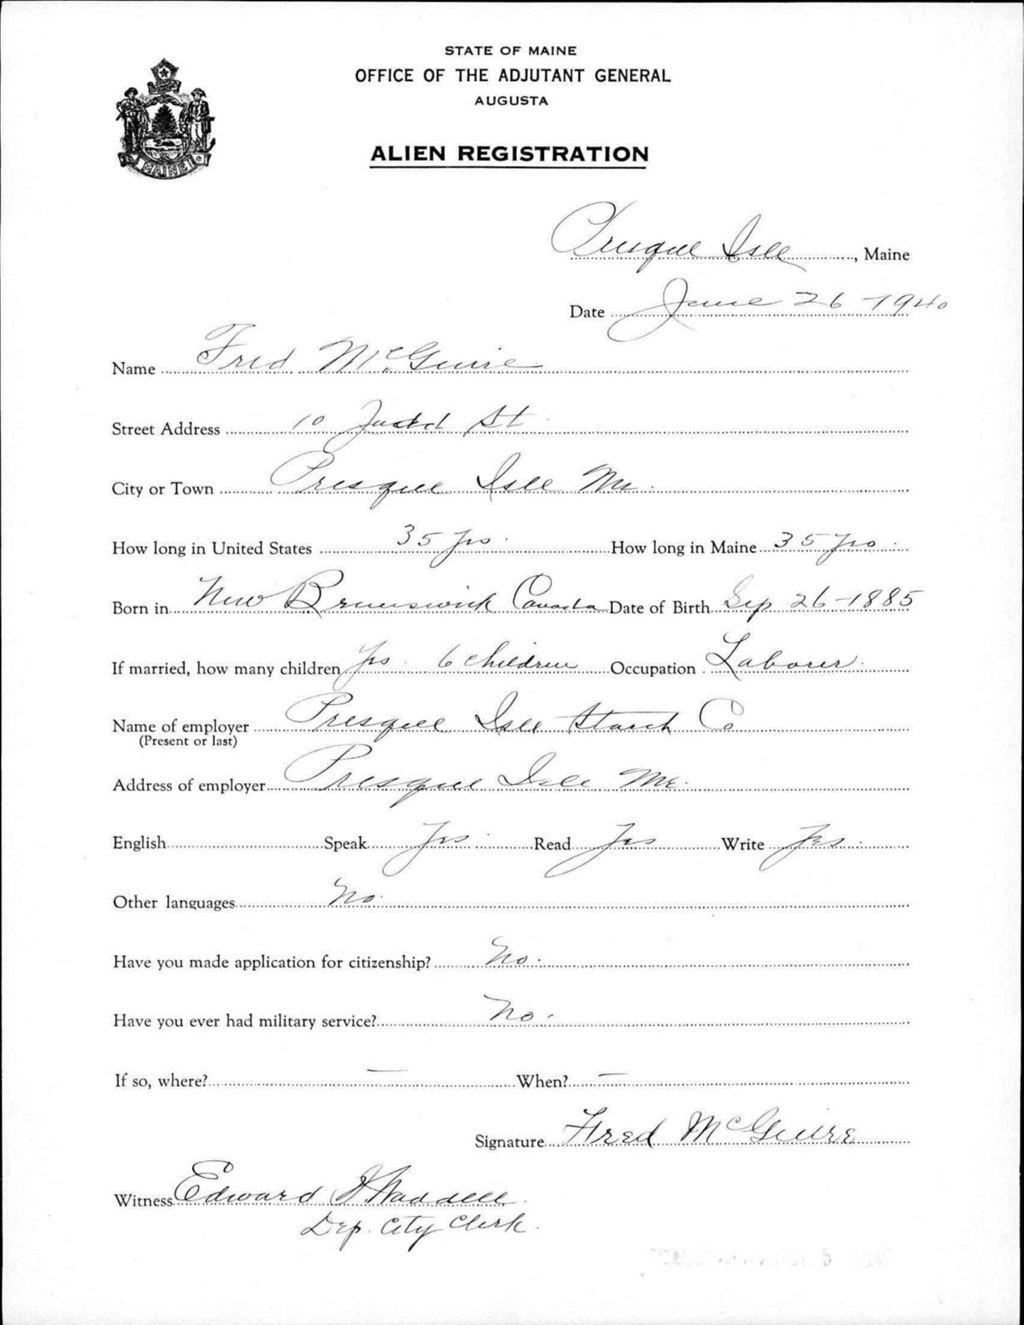 STATE OF MAINE
OFFICE OF THE ADJUTANT GENERAL
AUGUSTA
MAINE
ALIEN REGISTRATION
Presque Isle, Maine
Date June 26-1940
Name Fred McGuire
Street Address 10 Judd St
City or Town Presque Isle Me.
How long in United States 35 yrs. How long in Maine 35 yrs.
Born in New Brunswick Canada Date of Birth Sep 26-1885
If married, how many children yes. 6 children Occupation Laborer.
Name of employer Presque Isle Starch Co
(Present or last)
Address of employer Presque Isle Me.
English Speak Yes. Read Yes Write Yes.
Other languages No.
Have you made application for citizenship? No.
Have you ever had military service? No.
If so, where? — When? —
Signature Fred McGuire
Witness Edward Waddell
Dep. City Clerk.